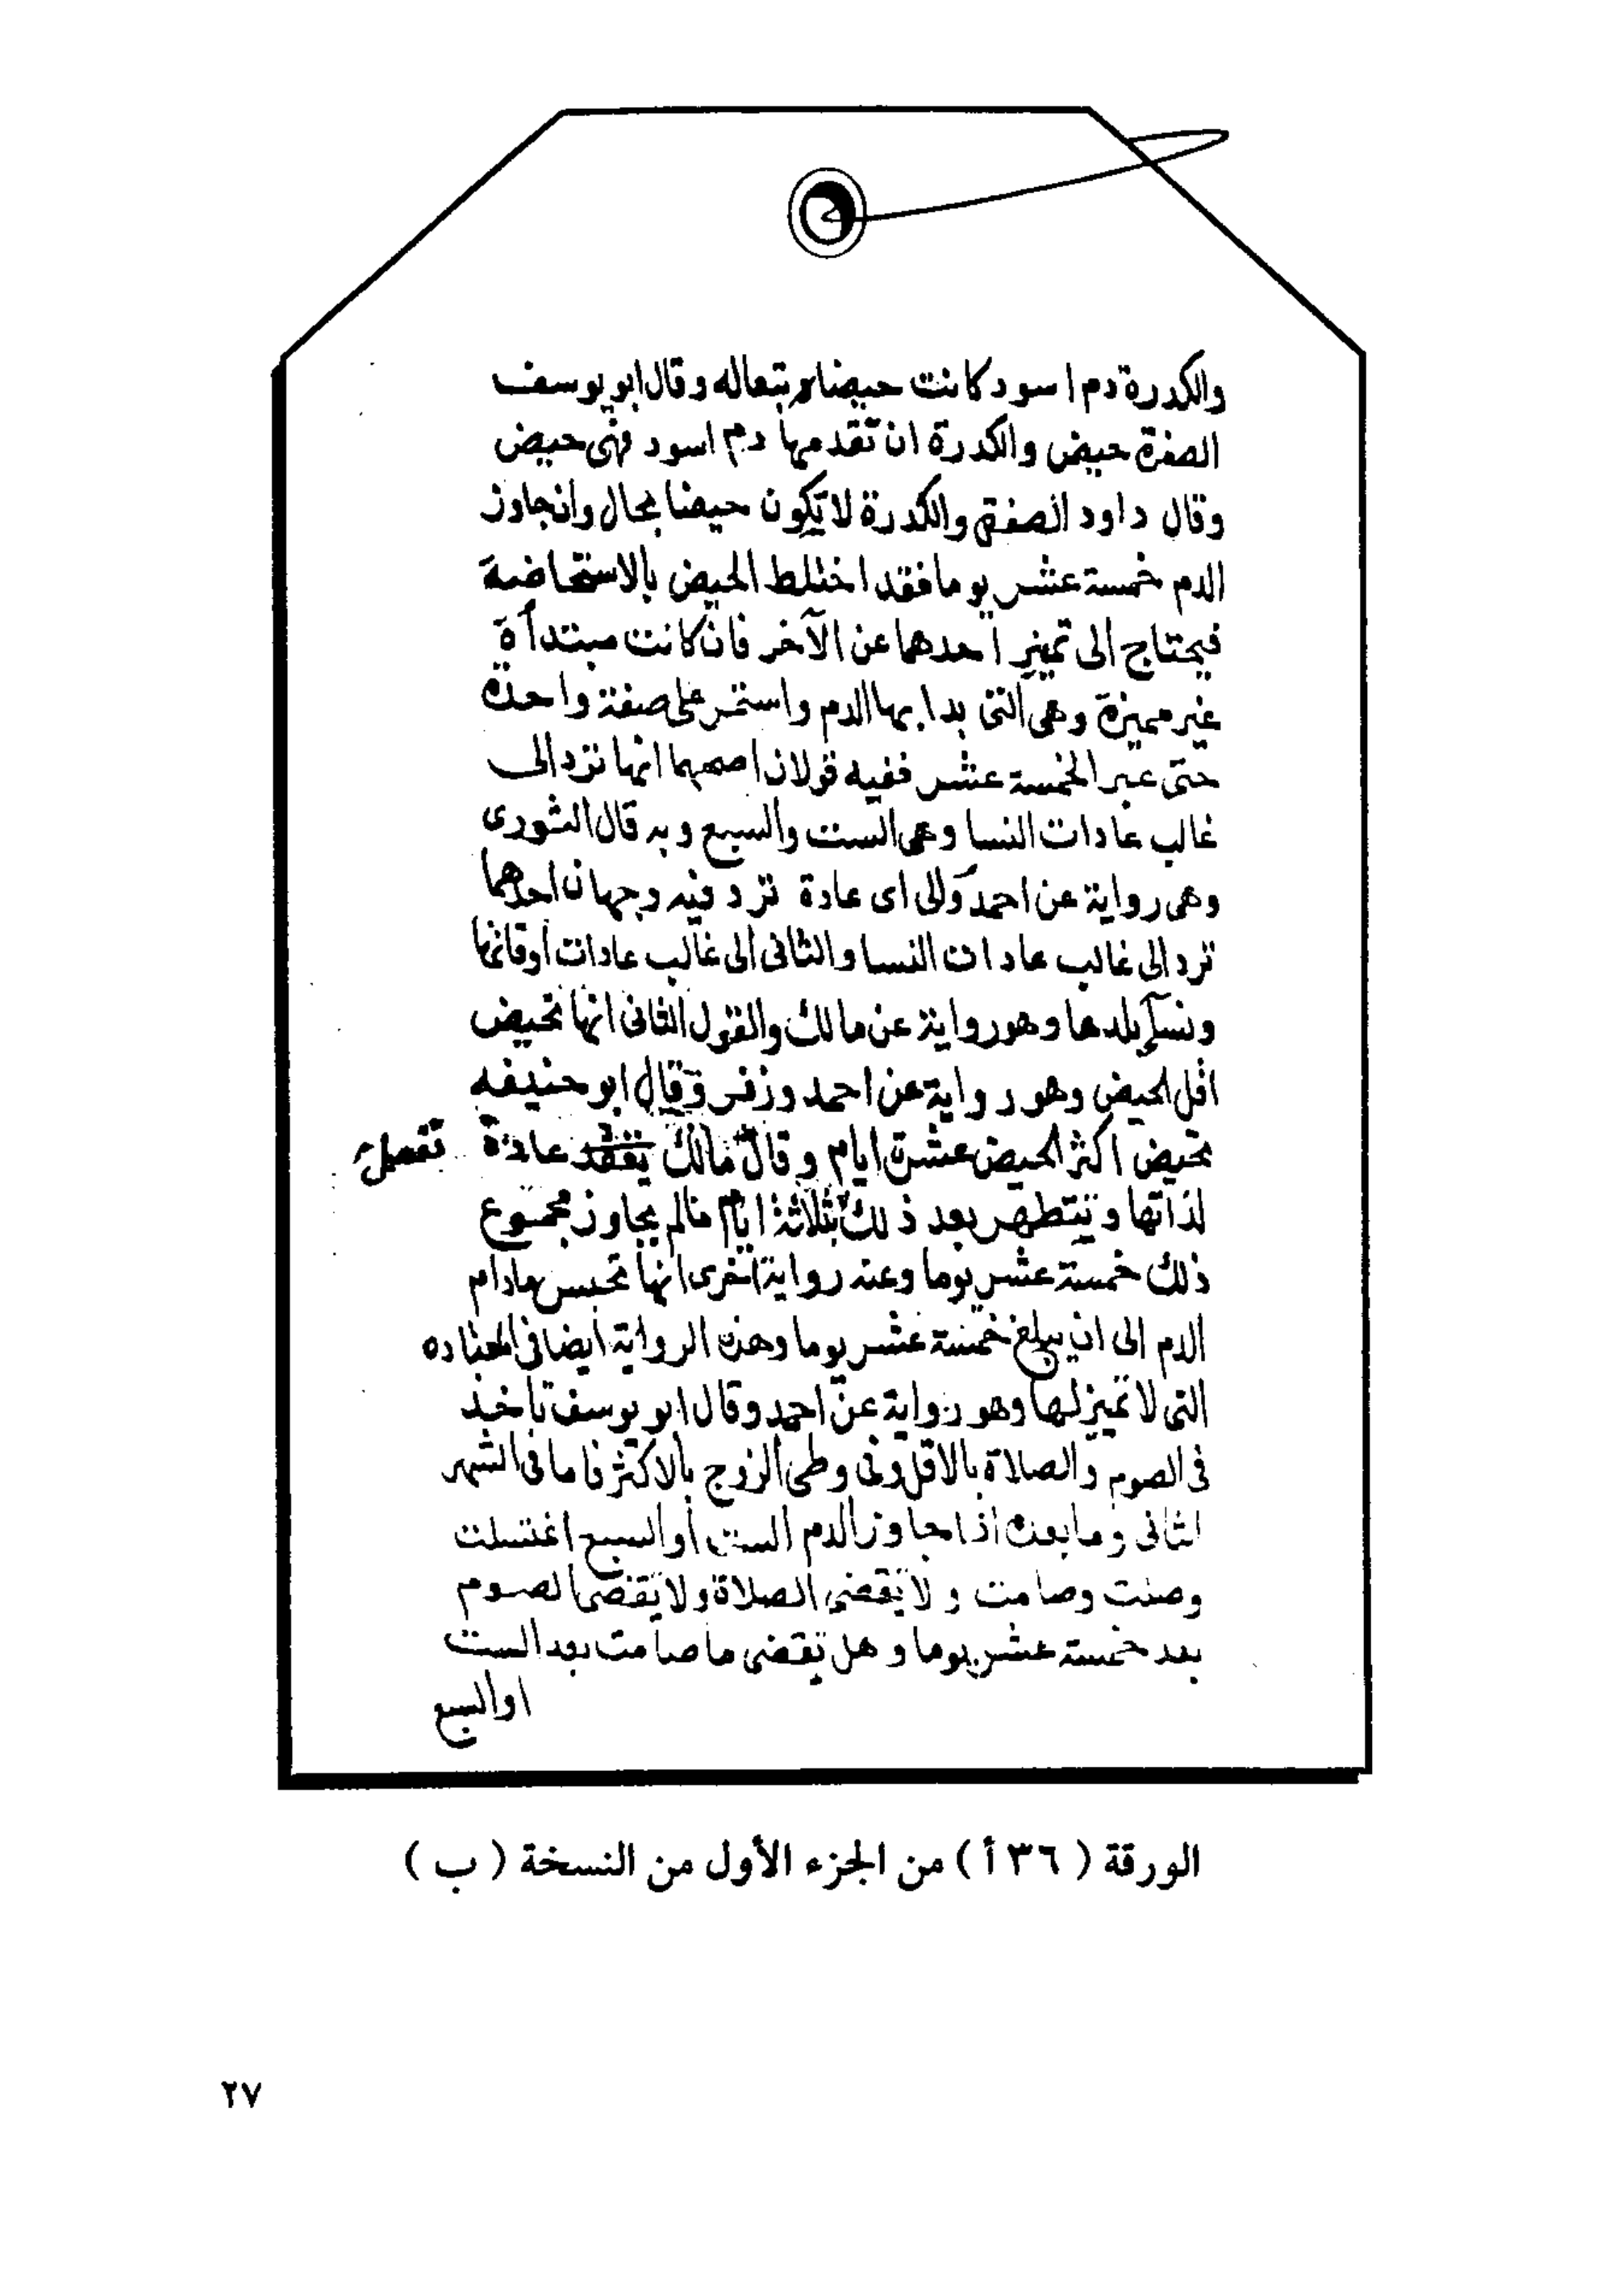 والكدرة دم اسود كانت حيضا بتعاله وقال ابو يوسف
الصفرة حيض والكدرة ان تقدمها دم اسود فهى حيض
وقال داود الصفرة والكدرة لا تكون حيضا بحال وان جاوز
الدم خمسة عشر يوما فقد اختلط الحيض بالاستحاضة
فيحتاج الى تميز احدهما عن الآخر فان كانت مبتدأة
غير مميزة وهى التى بدا بها الدم واستمر على صفة واحدة
حتى عبر الخمسة عشر ففيه قولان اصحهما انها ترد الى
غالب عادات النسا وهى الست والسبع وبه قال الثورى
وهى رواية عن احمد والى اى عادة ترد فيه وجهان احدهما
ترد الى غالب عادات النسا والثانى الى غالب عادات اوقاتها
ونسآء بلدها وهو رواية عن مالك والقول الثانى انها تحيض
اقل الحيض وهو رواية عن احمد وزفر وقال ابو حنيفه
تحيض اكثر الحيض عشرة ايام وقال مالك تقعد عادة
لذاتها وتتطهر بعد ذلك بثلاثة ايام مالم يجاوز مجموع
ذلك خمسة عشر يوما وعنه رواية اخرى انها تحبس مادام
الدم الى ان يبلغ خمسة عشر يوما وهذه الرواية ايضا فى
التى لا تميز لها وهو رواية عن احمد وقال ابو يوسف تأخذ
فى الصوم والصلاة بالاقل وفى وطئ الزوج بالاكثر فاما فى الشهر
الثانى وما بعده اذا جاوز الدم الست او السبع اغتسلت
وصلت وصامت ولا تقضى الصلاة ولا تقضى الصوم
بعد خمسة عشر يوما وهل تقضى ما صامت بعد الست
او السبع
الورقة ( ٣٦ أ ) من الجزء الأول من النسخة ( ب )
٢٧